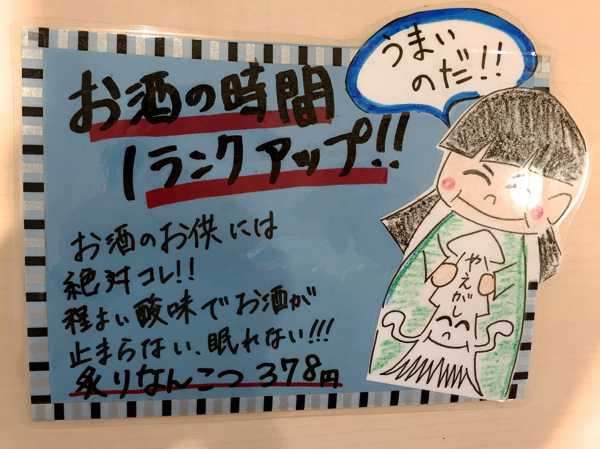 うまい
のだ!!
お酒の時間
1ランクアップ!!
お酒のお供には
絶対コレ!!
程よい酸味でお酒が
止まらない、眠れない!!!
炙りなんこつ 378円
やえがし